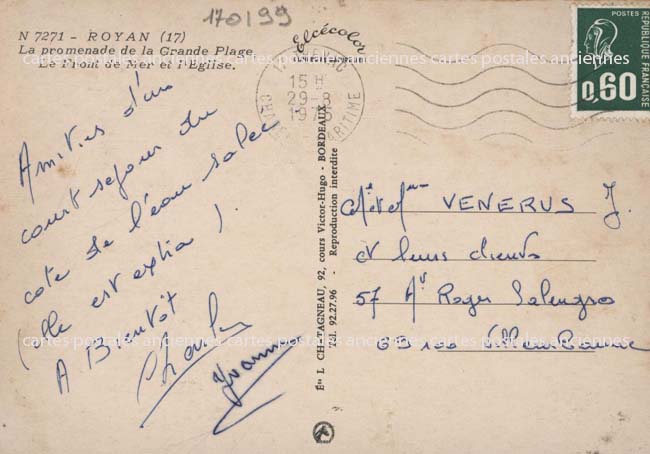 170/99
N 7271 - ROYAN (17)
La promenade de la Grande Plage.
Le Front de Mer et l'Eglise.
Elcécolor
15 H
29-8
MARITIME
POSTES
0,60
REPUBLIQUE FRANÇAISE
Amitiés d'un
court séjour du
coté de l'eau salée
(elle est extra).
A Bientôt
Charles
Yvonne
Ets L. CHATAGNEAU, 92, cours Victor-Hugo - BORDEAUX
Tél. 92.27.96 - Reproduction interdite
VENERUS J.
et leurs clients
57 Av Roger Salengro
69100 Villeurbanne
cartes postales anciennes cartes postales anciennes cartes postales anciennes
cartes postales anciennes cartes postales anciennes cartes postales anciennes